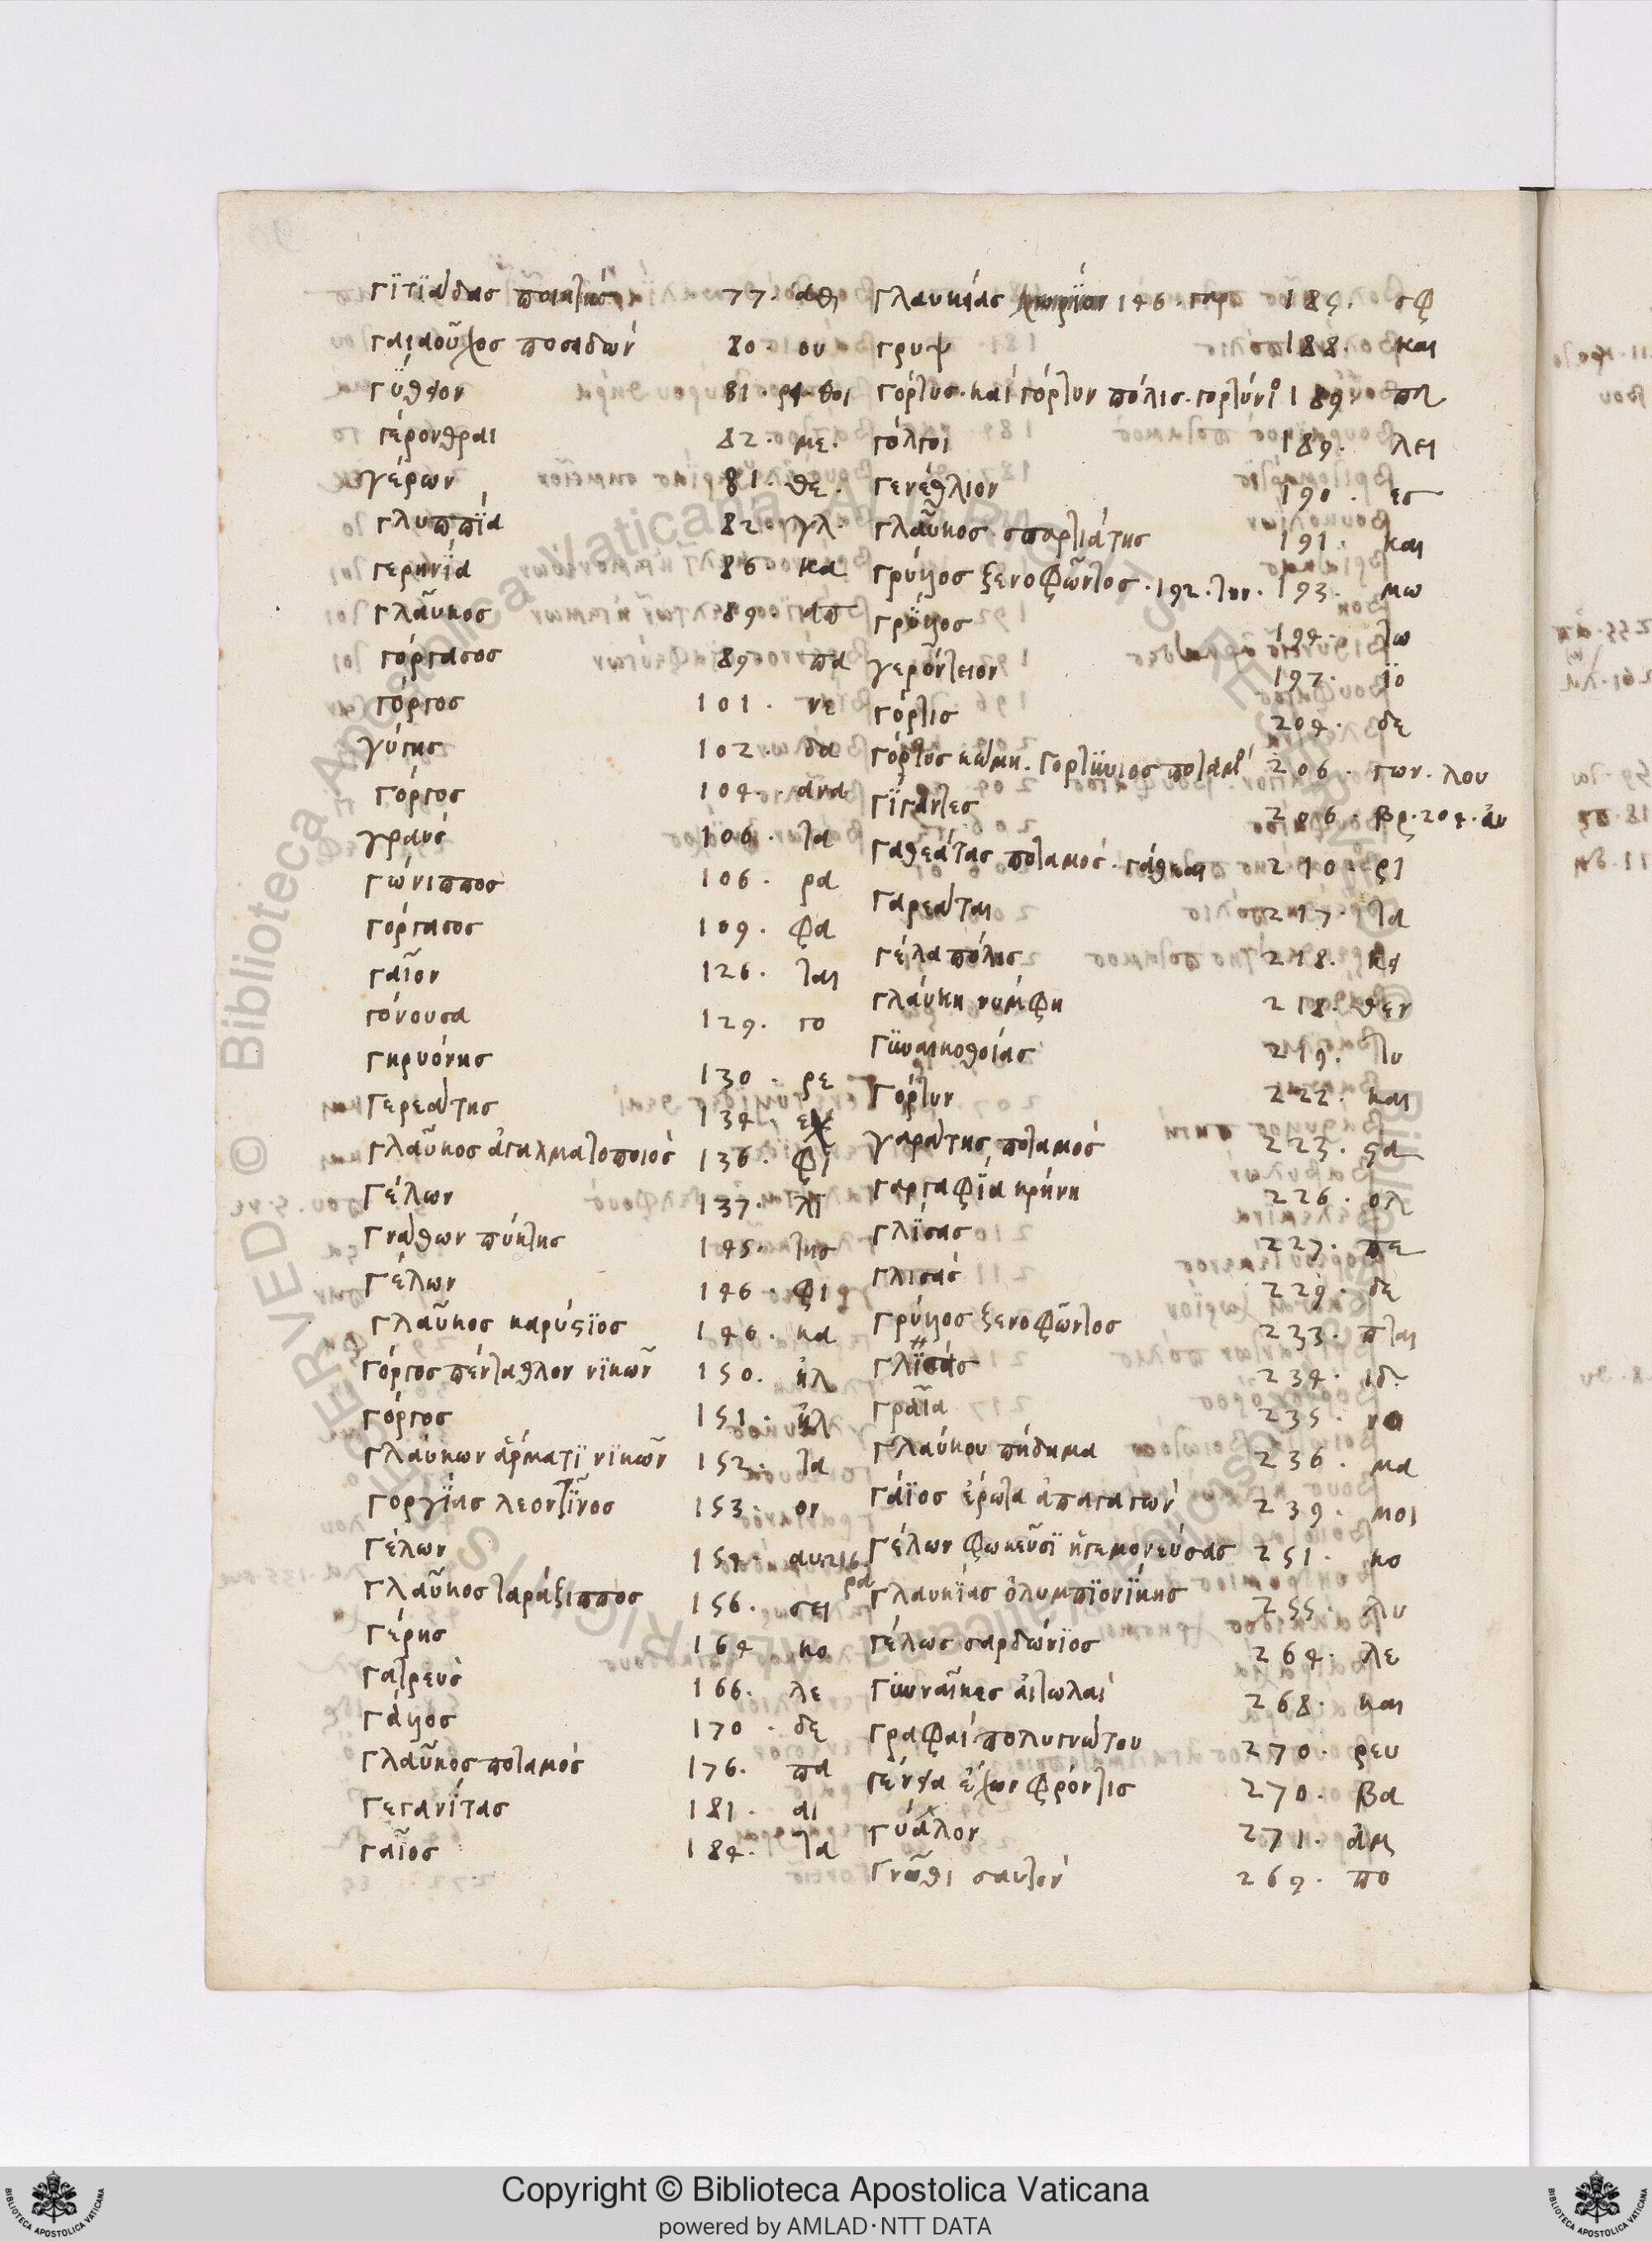 γϊτϊάδας ποιητὴς 77. ἀθ
γαιαοῦχος ποσειδων 80. ου
γύθειον 81. ρι. θοι
γέρονθραι 82. με.
γέρων 81. θε.
γλυππϊά 82. γλ.
γερηνϊά 86. κα
γλαῦκος 89 απ
γόργασος 89 πα
γόργος 101. νε
γύγης 102. δα
γόργος 104. ανα
γραύς 106. τα
γώνιππος 106. ρα
γόργασος 109. φα
γαῖον 126. ται
γόνουσα 129. γο
γηρυόνης 130. ρε
γερεάτης 134.
γλαῦκος ἀγαλματοποιός 136. φι
γέλων 137. λι
γνάθων πύκτης 145. της
γέλων 146. φι
γλαῦκος καρύστϊος 146. κα
γόργος πένταθλον νϊκῶν 150. ηλ
γόργος 151. ηλ
γλαύκων ἅρματϊ νϊκῶν 152. τα
γοργϊης λεοντῖνος 153. ον
γέλων 154. αυ 216. ρα
γλαῦκος ταράξιππος 156. σει
γέρης 164 κο
γατρεύς 166. λε
γάϊος 170. δε
γλαῦκος ποταμός 176. πα
γεγανίτας 181. αι
γαῖος 184. τα
γλαυκίας 146. γαρ 185. σφ
γρυψ 188. και
γόρτυς. καί γόρτυν πόλις. γορτύνι 189. πλ
γόλγοι 189. λει
γενέθλιον 190. ες
γλαῦκος σπαρτιάτης 191. και
γρύλλος ξενοφῶντος. 192. την. 193. μω
γρύλλος 194. τω
γερόντειον 197. ϊο
γόρτις 204. δε
γόρτυς κώμη. γορτύνιος ποταμὸ 206. γων. λου
γϊγαντες 206. βρ. 204. ἀν
γαθεάτας ποταμός. γάθεαι 210. ρι
γαρεάται 217. τα
γέλα πόλις 218. κα
γλάυκη νυμφη 218. θεν
γϋναικοθοίας 219. τυ
γόρτυν 222. και
γαράτης ποταμός 223. ϛα
γαργαφϊα κρήνη 226. ολ
γλϊσας 227. πε
γλισάς 229. δε
γρύλλος ξενοφῶντος 233. πται
γλϊσάς 234. ιδ
γραῖα 235. να
γλαύκου πήδημα 236. μα
γάϊος ἔρωτα ἀπαγαγών 239. μοι
γέλων φωκεῦσϊ ἡγεμονεύσας 251. κο
γλαυκϊας ὀλυμπϊονϊκης 255. λυ
γέλως σαρδώνϊος 264. λε
γϋναῖκες ἀιτωλαί 268. και
γραφαί πολυγνώτου 270. ρευ
γένεια ἔχων φρόντις 270. βα
γύαλον 271. ἀμ
γνῶθι σαυτόν 269. πο
Copyright © Biblioteca Apostolica Vaticana
powered by AMLAD·NTT DATA